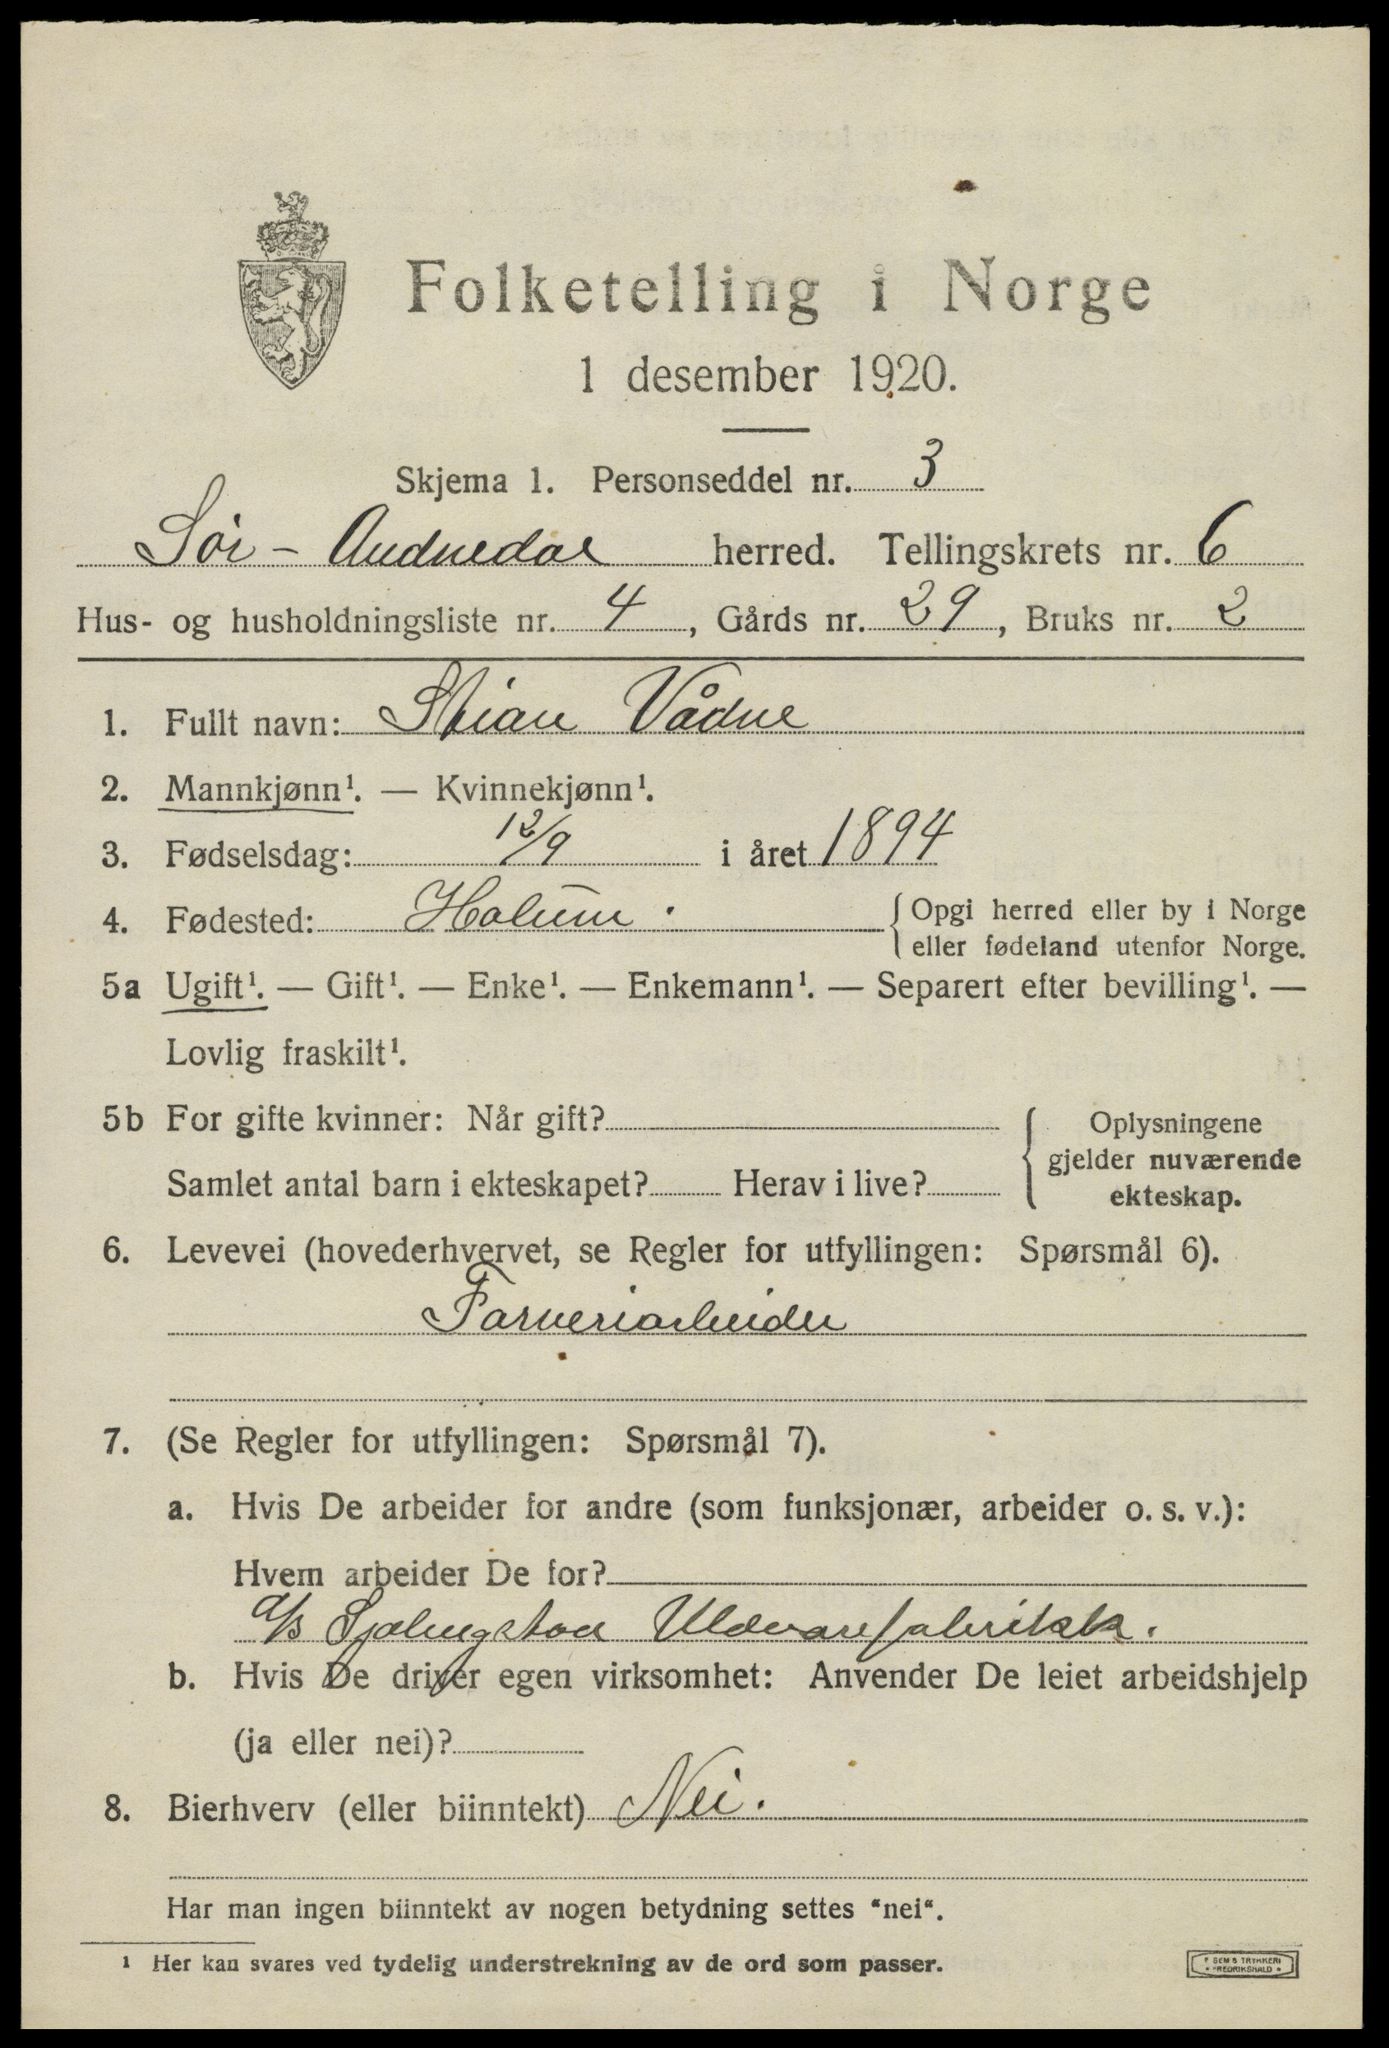 Folketelling i Norge
1 desember 1920.
Skjema 1. Personseddel nr. 3
Sør-Audnedal herred. Tellingskrets nr. 6
Hus- og husholdningsliste nr. 4, Gårds nr. 29, Bruks nr. 2
1. Fullt navn: Stian Vådne
2. Mannkjønn¹. — Kvinnekjønn¹.
3. Fødselsdag: 12/9 i året 1894
4. Fødested: Holum. { Opgi herred eller by i Norge
eller fødeland utenfor Norge.
5a Ugift¹. — Gift¹. — Enke¹. — Enkemann¹. — Separert efter bevilling¹. —
Lovlig fraskilt¹.
5b For gifte kvinner: Når gift? { Oplysningene
gjelder nuværende
Samlet antal barn i ekteskapet? Herav i live? ekteskap.
6. Levevei (hovederhvervet, se Regler for utfyllingen: Spørsmål 6).
Farveriarbeider
7. (Se Regler for utfyllingen: Spørsmål 7).
a. Hvis De arbeider for andre (som funksjonær, arbeider o. s. v.):
Hvem arbeider De for?
A/S Sjølingstad Uldvarefabrikk.
b. Hvis De driver egen virksomhet: Anvender De leiet arbeidshjelp
(ja eller nei)?
8. Bierhverv (eller biinntekt) Nei.
Har man ingen biinntekt av nogen betydning settes "nei".
¹ Her kan svares ved tydelig understrekning av de ord som passer.
SEMS TRYKKERI
FREDRIKSHALD